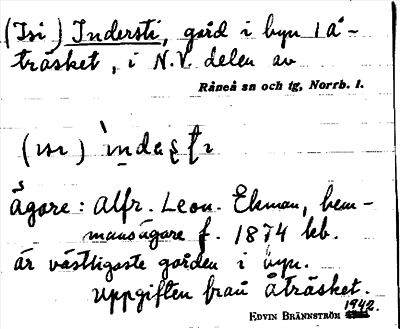 (Isi) Indersti, gård i byn i å-
träsket, i N.V. delen av
Råneå sn och tg, Norrb. l.
(ısı) ìndeʂtɩ
s
ägare: Alfr. Leon. Ekman, hem-
mansägare f. 1874 kb.
är västligaste gården i byn.
Uppgiften från Åträsket.
1942.
EDVIN BRÄNNSTRÖM